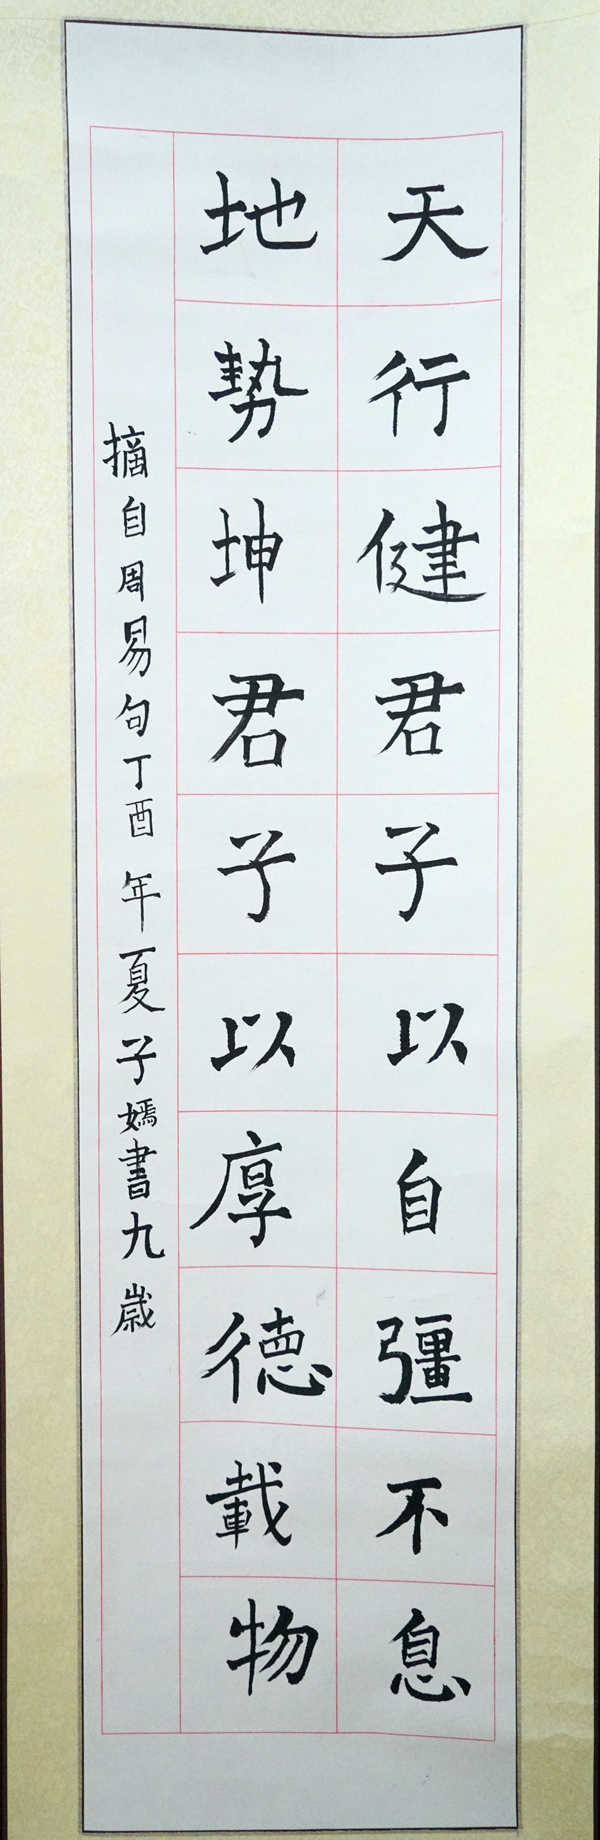 天行健君子以自彊不息
地勢坤君子以厚德載物
摘自周易句丁酉年夏子嫣書九歲